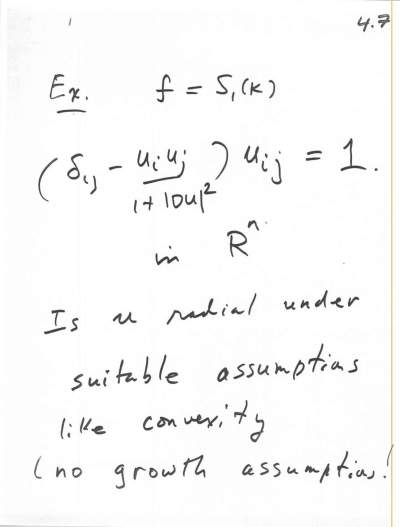 4.7
Ex. f = S₁(K)
(δᵢⱼ - uᵢuⱼ / 1+|Du|²) uᵢⱼ = 1.
in Rⁿ.
Is u radial under
suitable assumptions
like convexity
(no growth assumptions!